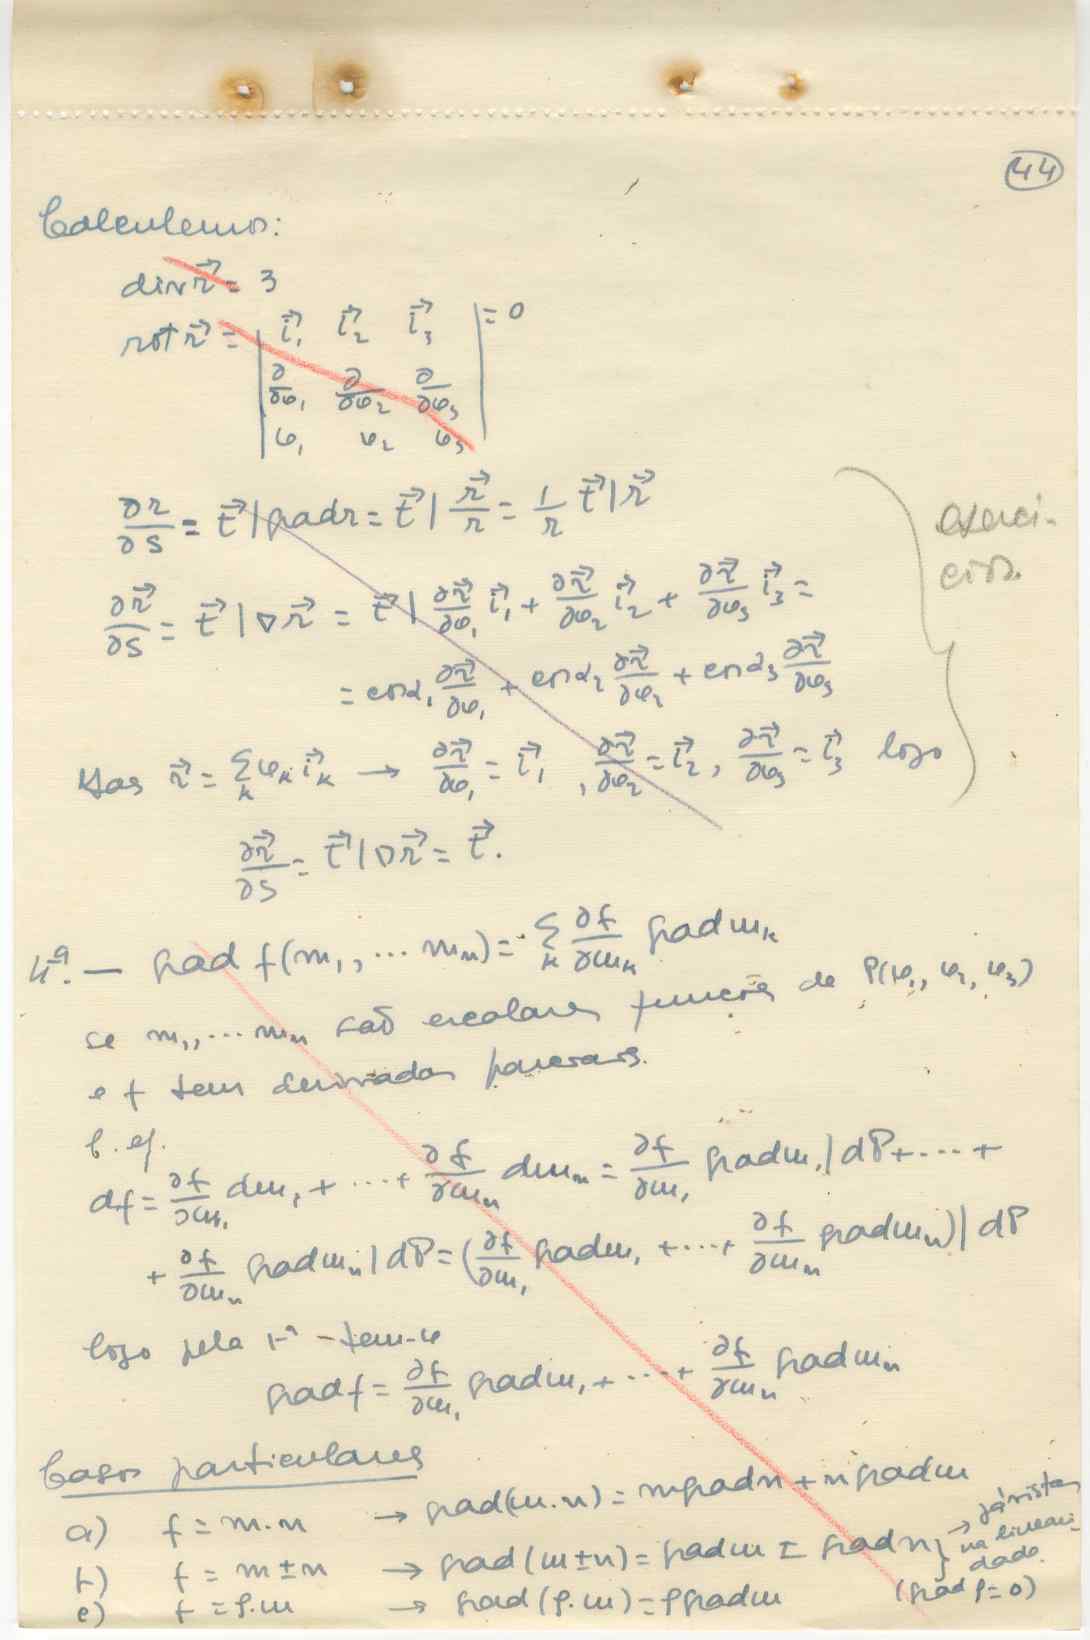 44
Calculemos:
div r⃗ = 3
rot r⃗ = | i⃗₁ i⃗₂ i⃗₃ | = 0
∂/∂φ₁ ∂/∂φ₂ ∂/∂φ₃
φ₁ φ₂ φ₃
∂r/∂s = t⃗ | grad r = t⃗ | r⃗/r = 1/r t⃗ | r⃗
exercí-
cios.
∂r⃗/∂s = t⃗ | ∇r⃗ = t⃗ | ∂r⃗/∂φ₁ i⃗₁ + ∂r⃗/∂φ₂ i⃗₂ + ∂r⃗/∂φ₃ i⃗₃ =
= cos α₁ ∂r⃗/∂φ₁ + cos α₂ ∂r⃗/∂φ₂ + cos α₃ ∂r⃗/∂φ₃
Mas r⃗ = Σₖ φₖ i⃗ₖ → ∂r⃗/∂φ₁ = i⃗₁, ∂r⃗/∂φ₂ = i⃗₂, ∂r⃗/∂φ₃ = i⃗₃ logo
∂r⃗/∂s = t⃗ | ∇r⃗ = t⃗.
4ª. — grad f(m₁, ... mₙ) = Σₖ ∂f/∂mₖ grad mₖ
se m₁, ... mₙ são escalares funções de P(φ₁, φ₂, φ₃)
e f tem derivadas parciais.
C. ef.
df = ∂f/∂m₁ dm₁ + ... + ∂f/∂mₙ dmₙ = ∂f/∂m₁ grad m₁ | dP + ... +
+ ∂f/∂mₙ grad mₙ | dP = (∂f/∂m₁ grad m₁ + ... + ∂f/∂mₙ grad mₙ) | dP
logo pela 1ª - tem-se
grad f = ∂f/∂m₁ grad m₁ + ... + ∂f/∂mₙ grad mₙ
Casos particulares
a) f = m.n → grad(m.n) = m grad n + n grad m
b) f = m ± n → grad(m ± n) = grad m ± grad n } → já vistas
na lineari-
dade.
c) f = ρ.m → grad(ρ.m) = ρ grad m (grad ρ = 0)